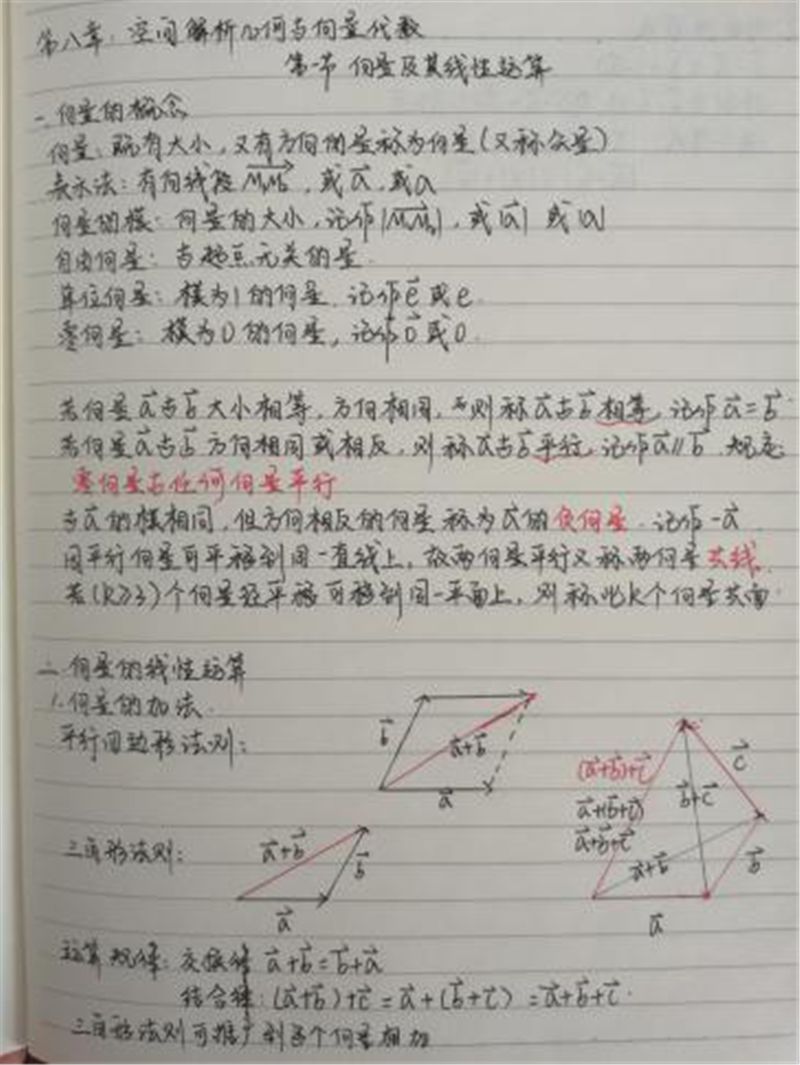 第八章：空间解析几何与向量代数
第一节 向量及其线性运算
一、向量的概念
向量：既有大小，又有方向的量称为向量（又称矢量）
表示法：有向线段 M₁M₂→，或 a⃗，或 a
向量的模：向量的大小，记作|M₁M₂→|，或|a⃗| 或|a|
自由向量：与起点无关的量.
单位向量：模为1的向量. 记作 e⃗ 或 e.
零向量：模为0的向量，记作 0⃗ 或 0.
若向量 a⃗ 与 b⃗ 大小相等，方向相同，则称 a⃗ 与 b⃗ 相等，记作 a⃗ = b⃗
若向量 a⃗ 与 b⃗ 方向相同或相反，则称 a⃗ 与 b⃗ 平行，记作 a⃗ // b⃗ . 规定：
零向量与任何向量平行
与 a⃗ 的模相同，但方向相反的向量称为 a⃗ 的负向量. 记作 -a⃗
因平行向量可平移到同一直线上，故两向量平行又称两向量共线.
若(k≥3)个向量经平移可移到同一平面上，则称此k个向量共面.
二、向量的线性运算
1. 向量的加法.
平行四边形法则：
b⃗
a⃗+b⃗
a⃗
(a⃗+b⃗)+c⃗
a⃗+(b⃗+c⃗)
a⃗+b⃗+c⃗
b⃗+c⃗
c⃗
a⃗+b⃗
b⃗
a⃗
三角形法则：
a⃗+b⃗
b⃗
a⃗
运算规律：交换律 a⃗+b⃗=b⃗+a⃗
结合律：(a⃗+b⃗)+c⃗ = a⃗+(b⃗+c⃗) = a⃗+b⃗+c⃗.
三角形法则可推广到多个向量相加